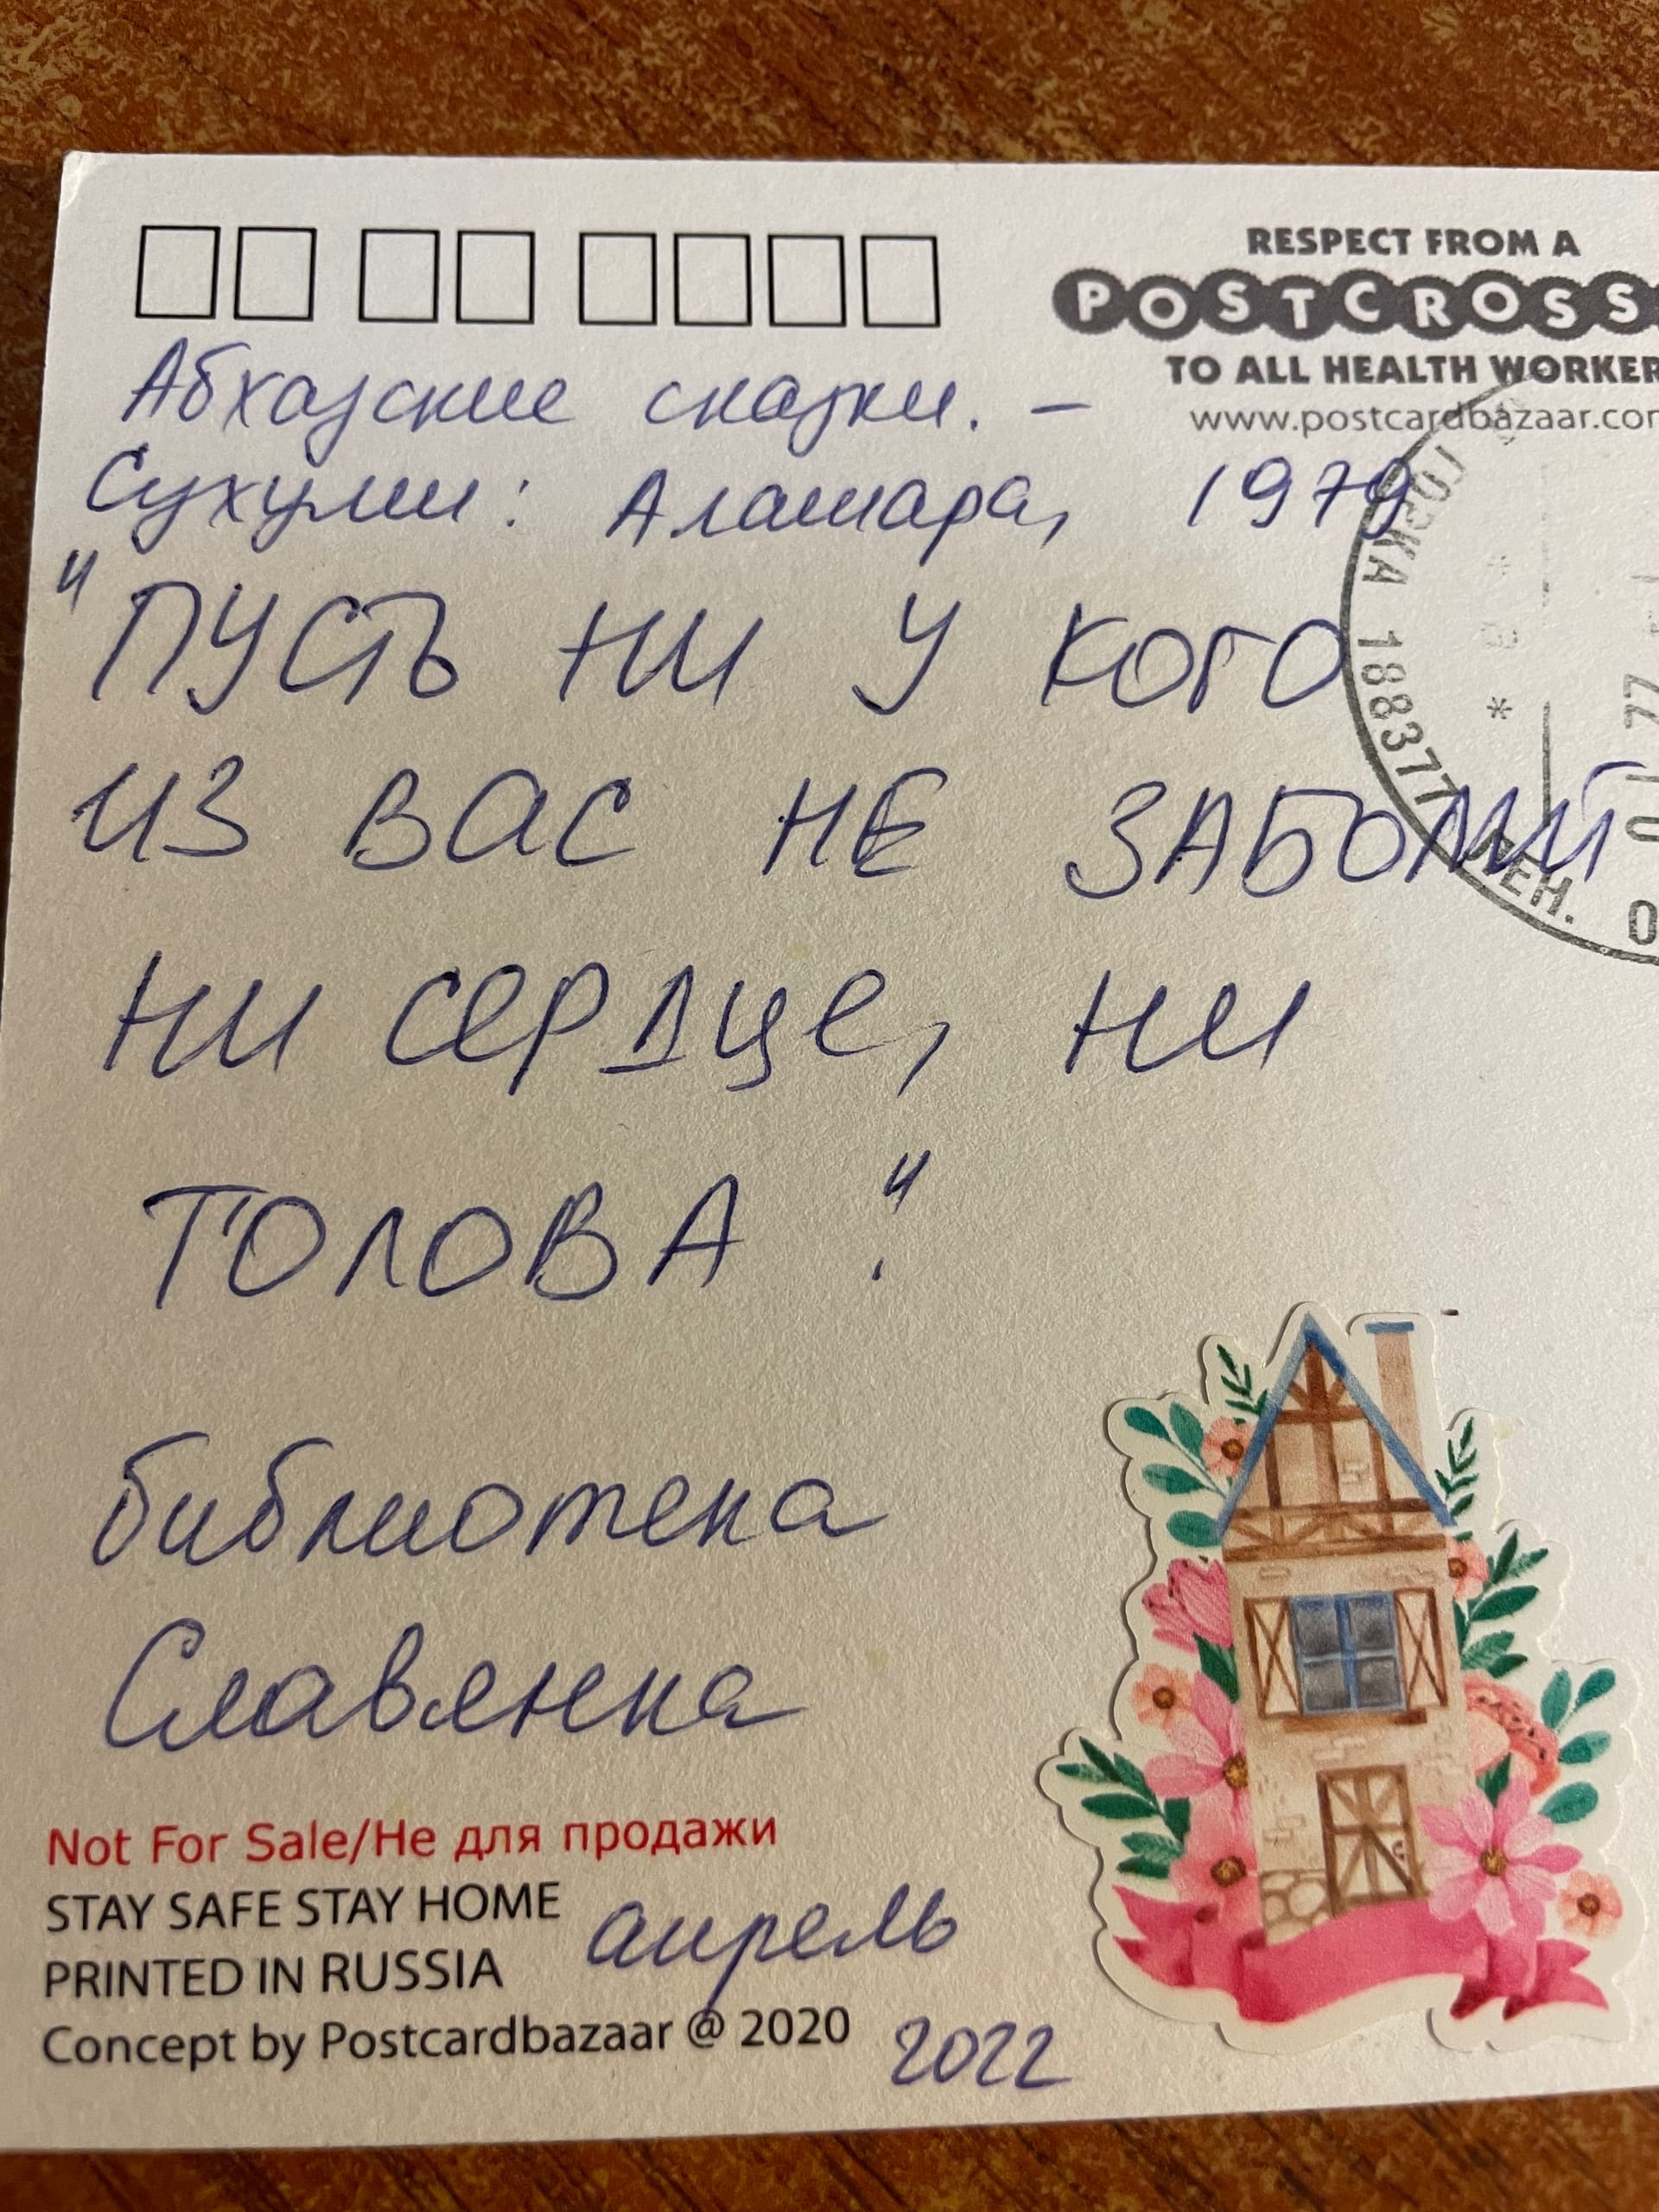 RESPECT FROM A
POSTCROSS
TO ALL HEALTH WORKER
www.postcardbazaar.com
Абхазские сказки. –
Сухуми: Алашара, 1979
"ПУСТЬ НИ У КОГО
ИЗ ВАС НЕ ЗАБОЛИТ
НИ СЕРДЦЕ, НИ
ГОЛОВА".
библиотека
Славянка
Not For Sale/Не для продажи
STAY SAFE STAY HOME
PRINTED IN RUSSIA
апрель
Concept by Postcardbazaar @ 2020
2022
ГОРКА 188377 ЛЕН. О